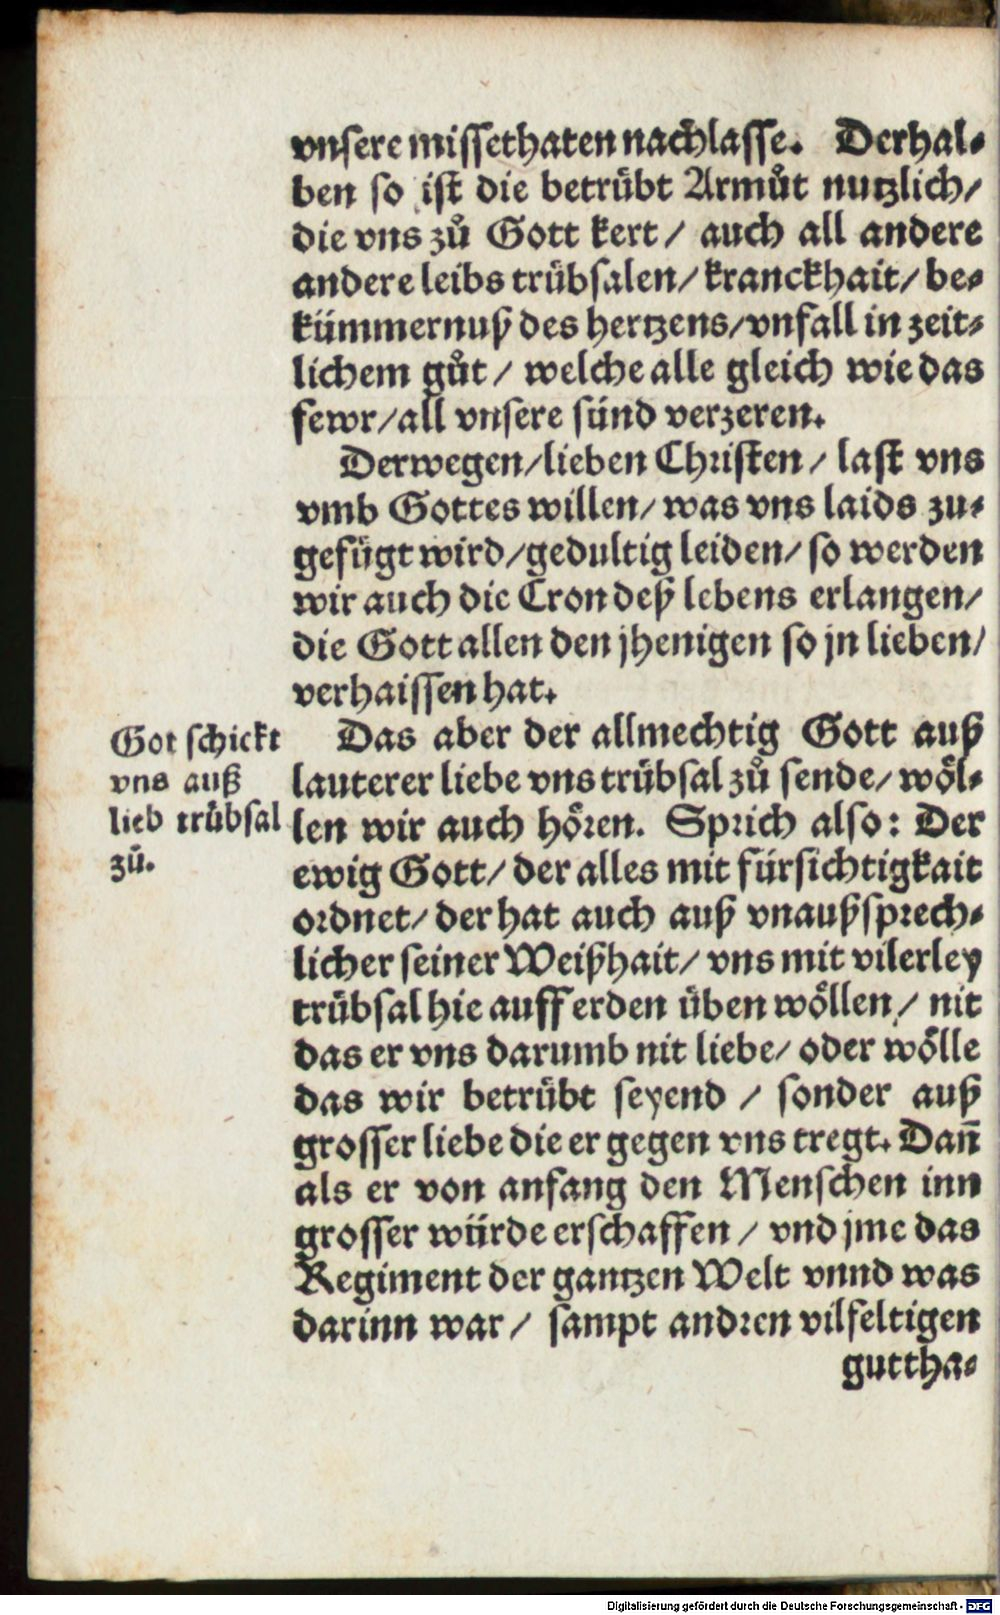 vnsere missethaten nachlasse. Derhal⸗
ben so ist die betrübt Armůt nutzlich/
die vns zů Gott kert / auch all andere
andere leibs trübsalen/ kranckhait/ be⸗
kümmernuß des hertzens/ vnfall in zeit⸗
lichem gůt / welche alle gleich wie das
fewr/ all vnsere sünd verzeren.
Derwegen/ lieben Christen / last vns
vmb Gottes willen/ was vns laids zu⸗
gefügt wird/ gedultig leiden/ so werden
wir auch die Cron deß lebens erlangen/
die Gott allen den jhenigen so jn lieben/
verhaissen hat.
Got schickt
vns auß
lieb trübsal
zů.
Das aber der allmechtig Gott auß
lauterer liebe vns trübsal zů sende/ wöl⸗
len wir auch hören. Sprich also: Der
ewig Gott/ der alles mit fürsichtigkait
ordnet/ der hat auch auß vnaußsprech⸗
licher seiner Weißhait/ vns mit vilerley
trübsal hie auff erden üben wöllen / nit
das er vns darumb nit liebe/ oder wölle
das wir betrübt seyend / sonder auß
grosser liebe die er gegen vns tregt. Dañ
als er von anfang den Menschen inn
grosser würde erschaffen / vnd jme das
Regiment der gantzen Welt vnnd was
darinn war / sampt andren vilfeltigen
guttha⸗
Digitalisierung gefördert durch die Deutsche Forschungsgemeinschaft - DFG